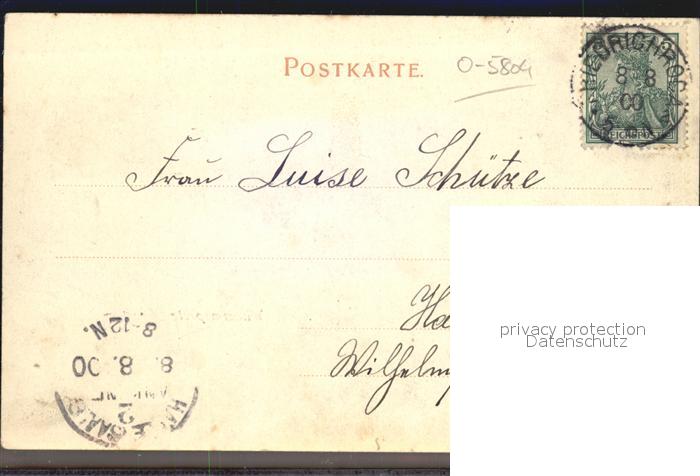 POSTKARTE.
O-5804
FRIEDRICHRODA
8 8
00
REICHSPOST
Frau Luise Schütze
privacy protection
Datenschutz
Ha
Wilhelm
8-12N.
8. 8. 00